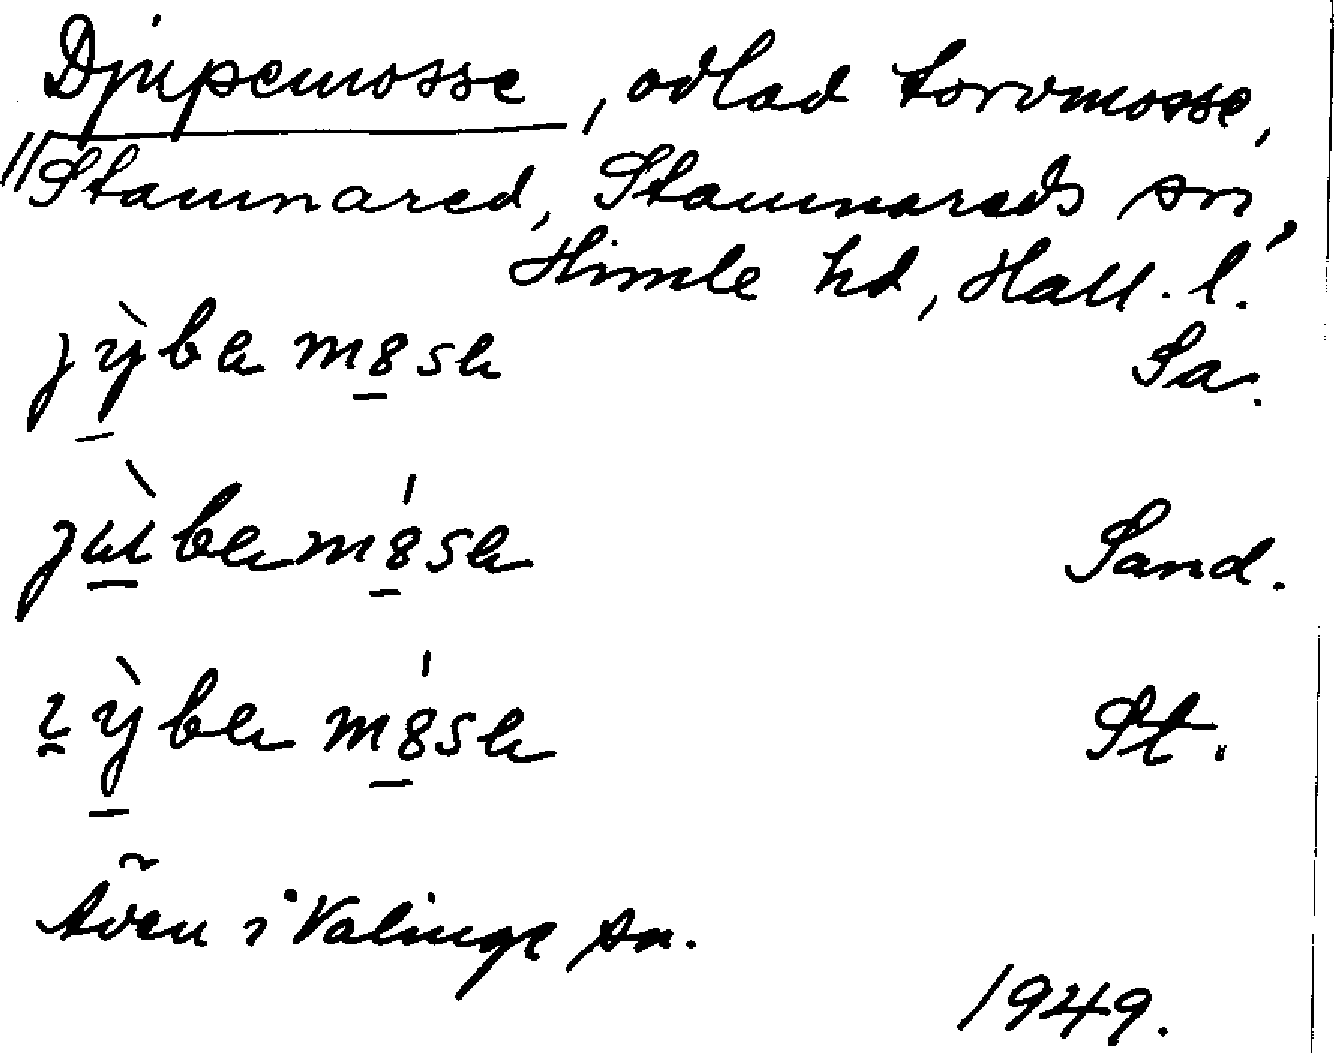 Djupemosse, odlad torvmosse,
Stamnared, Stamnareds sn,
Himle hd, Hall. l.
jỳ̠ba mo̠sa Sa.
jù̠bamó̠sa Sand.
ỳ̠ba mó̠sa St.
Även i Valinge sn.
1949.